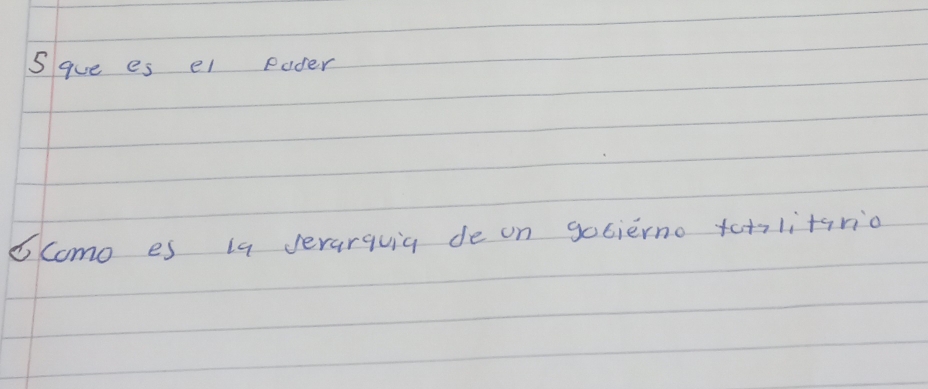 5 que es el Poder
6 Como es la Jerarquia de un gobiérno totalitario